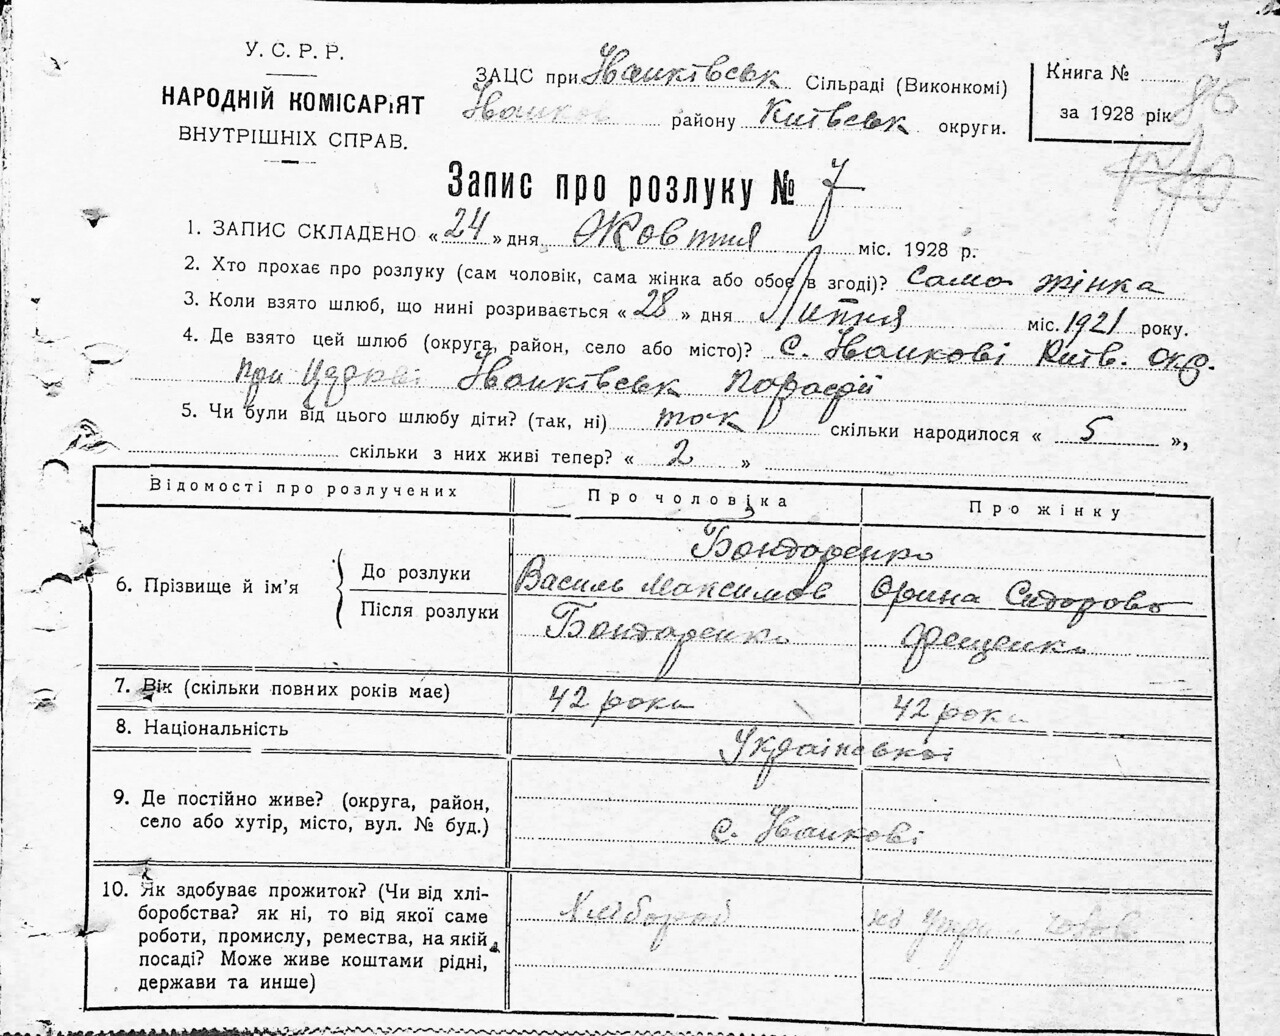 7
У. С. Р. Р.
НАРОДНІЙ КОМІСАРІЯТ
ВНУТРІШНІХ СПРАВ.
ЗАЦС при Іванківськ Сільраді (Виконкомі)
Іванков району Київськ округи.
Книга №
за 1928 рік
86
Запис про розлуку № 7
1. ЗАПИС СКЛАДЕНО « 24 » дня Жовтня міс. 1928 р.
2. Хто прохає про розлуку (сам чоловік, сама жінка або обоє в згоді)? сама жінка
3. Коли взято шлюб, що нині розривається « 28 » дня Липня міс. 1921 року.
4. Де взято цей шлюб (округа, район, село або місто)? с. Іванкові Київ. окр.
При Церкві Іванківськ Парафії
5. Чи були від цього шлюбу діти? (так, ні) так скільки народилося « 5 »,
скільки з них живі тепер? « 2 »
Відомості про розлучених Про чоловіка Про жінку
Бондаренко
6. Прізвище й ім'я До розлуки Василь Максимов Орина Сидорова
Після розлуки Бондаренко Фещенко
7. Вік (скільки повних років має) 42 роки 42 роки
8. Національність Української
9. Де постійно живе? (округа, район,
село або хутір, місто, вул. № буд.) с. Іванкові
10. Як здобуває прожиток? (Чи від хлі-
боробства? як ні, то від якої саме Хлібороб
роботи, промислу, ремества, на якій на
посаді? Може живе коштами рідні,
держави та инше)